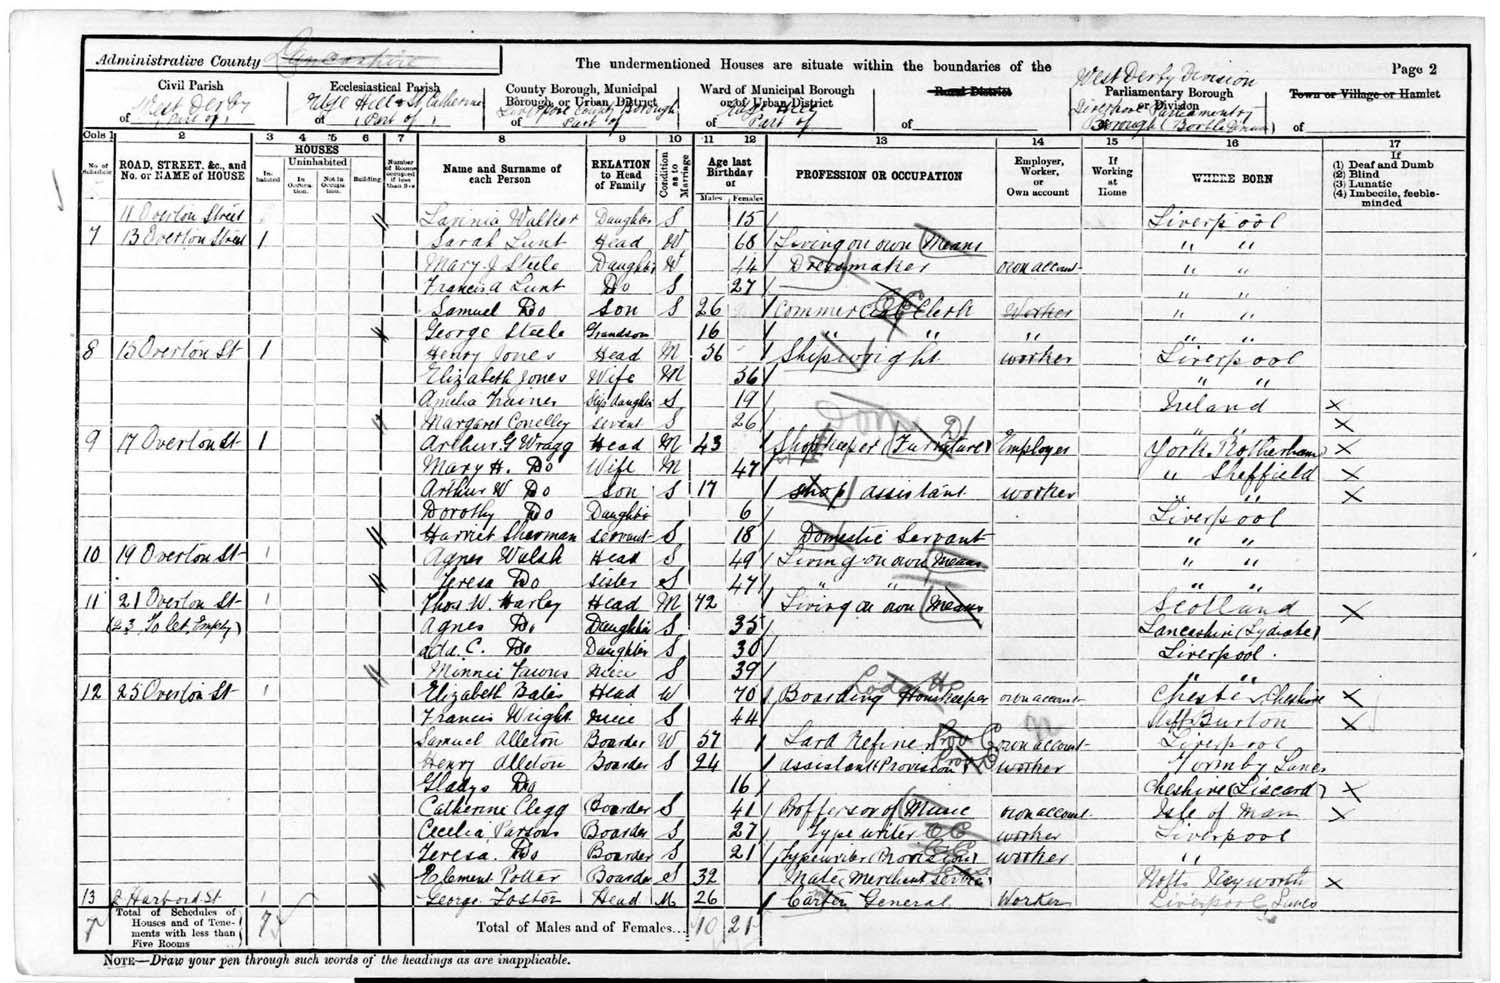 Administrative County Lancashire
The undermentioned Houses are situate within the boundaries of the
Page 2
Civil Parish
of West Derby
(Part of)
Ecclesiastical Parish
of Edge Hill St Catherine
(Part of)
County Borough, Municipal Borough, or Urban District
of Liverpool County Borough
Part of
Ward of Municipal Borough or of Urban District
of Edge Hill
Part of
Rural District
of
West Derby Division
Parliamentary Borough or Division
of Liverpool Parliamentary
Borough
Town or Village or Hamlet
of
Cols 1 2 3 4 5 6 7 8 9 10 11 12 13 14 15 16 17
No. of Schedule
ROAD, STREET, &c., and No. or NAME of HOUSE
HOUSES
Inhabited
Uninhabited
In Occupation.
Not in Occupation.
Building
Number of Rooms occupied if less than five
Name and Surname of each Person
RELATION to Head of Family
Condition as to Marriage
Age last Birthday of
Males Females
PROFESSION OR OCCUPATION
Employer, Worker, or Own account
If Working at Home
WHERE BORN
If
(1) Deaf and Dumb
(2) Blind
(3) Lunatic
(4) Imbecile, feeble-minded
11 Overton Street Lavinia Walker Daughter S 15 Liverpool
7 13 Overton Street 1 Sarah Lunt Head W 68 Living on own Means " "
Mary J Steele Daughter W 44 Dressmaker own account " "
Francis A Lunt Do S 27 " "
Samuel Do Son S 26 Commercial Clerk Worker " "
George Steele Grandson 16 " " " " "
8 15 Overton St 1 Henry Jones Head M 56 Shipwright worker Liverpool
Elizabeth Jones Wife M 36 " "
Amelia Trainer Stepdaughter S 19 Ireland
Margaret Conelley Servent S 26 " "
9 17 Overton St 1 Arthur G Wragg Head M 43 Shopkeeper (Furniture) Employer York Rotherham
Mary H. Do Wife M 47 " Sheffield
Arthur W Do Son S 17 shop assistant worker " "
Dorothy Do Daughter 6 Liverpool
Harriet Sherman Servant S 18 Domestic Servant " "
10 19 Overton St 1 Agnes Walsh Head S 49 Living on own Means " "
Teresa Do Sister S 47 " " " "
11 21 Overton St 1 Thos W. Harley Head M 72 Living on own Means Scotland
(23 To let, Empty) Agnes Do Daughter S 35 Lancashire (Lydiate)
Ada C. Do Daughter S 30 Liverpool.
Minnie Niece S 39 " "
12 25 Overton St 1 Elizabeth Bates Head W 70 Boarding Housekeeper own account Chester Cheshire
Francis Wright niece S 44 Staff Burton
Samuel Alleton Boarder W 57 Lard Refiner own account Liverpool
Henry Alleton Boarder S 24 assistant Provision worker Formby Lancs
Gladys Do 16 Cheshire (Liscard)
Catherine Clegg Boarder S 41 Proffersor of Music own account Isle of Man
Cecilia Parsons Boarder S 27 Type writer worker Liverpool
Teresa Do Boarder S 21 Typewriter (Provision) worker "
Element Potter Boarder S 32 Mate, Merchant Service Notts
13 2 Harbord St 1 George Foster Head M 26 Carter General Worker Liverpool Lancs
7 Total of Schedules of Houses and of Tenements with less than Five Rooms 7
Total of Males and of Females... 10 21
NOTE—Draw your pen through such words of the headings as are inapplicable.